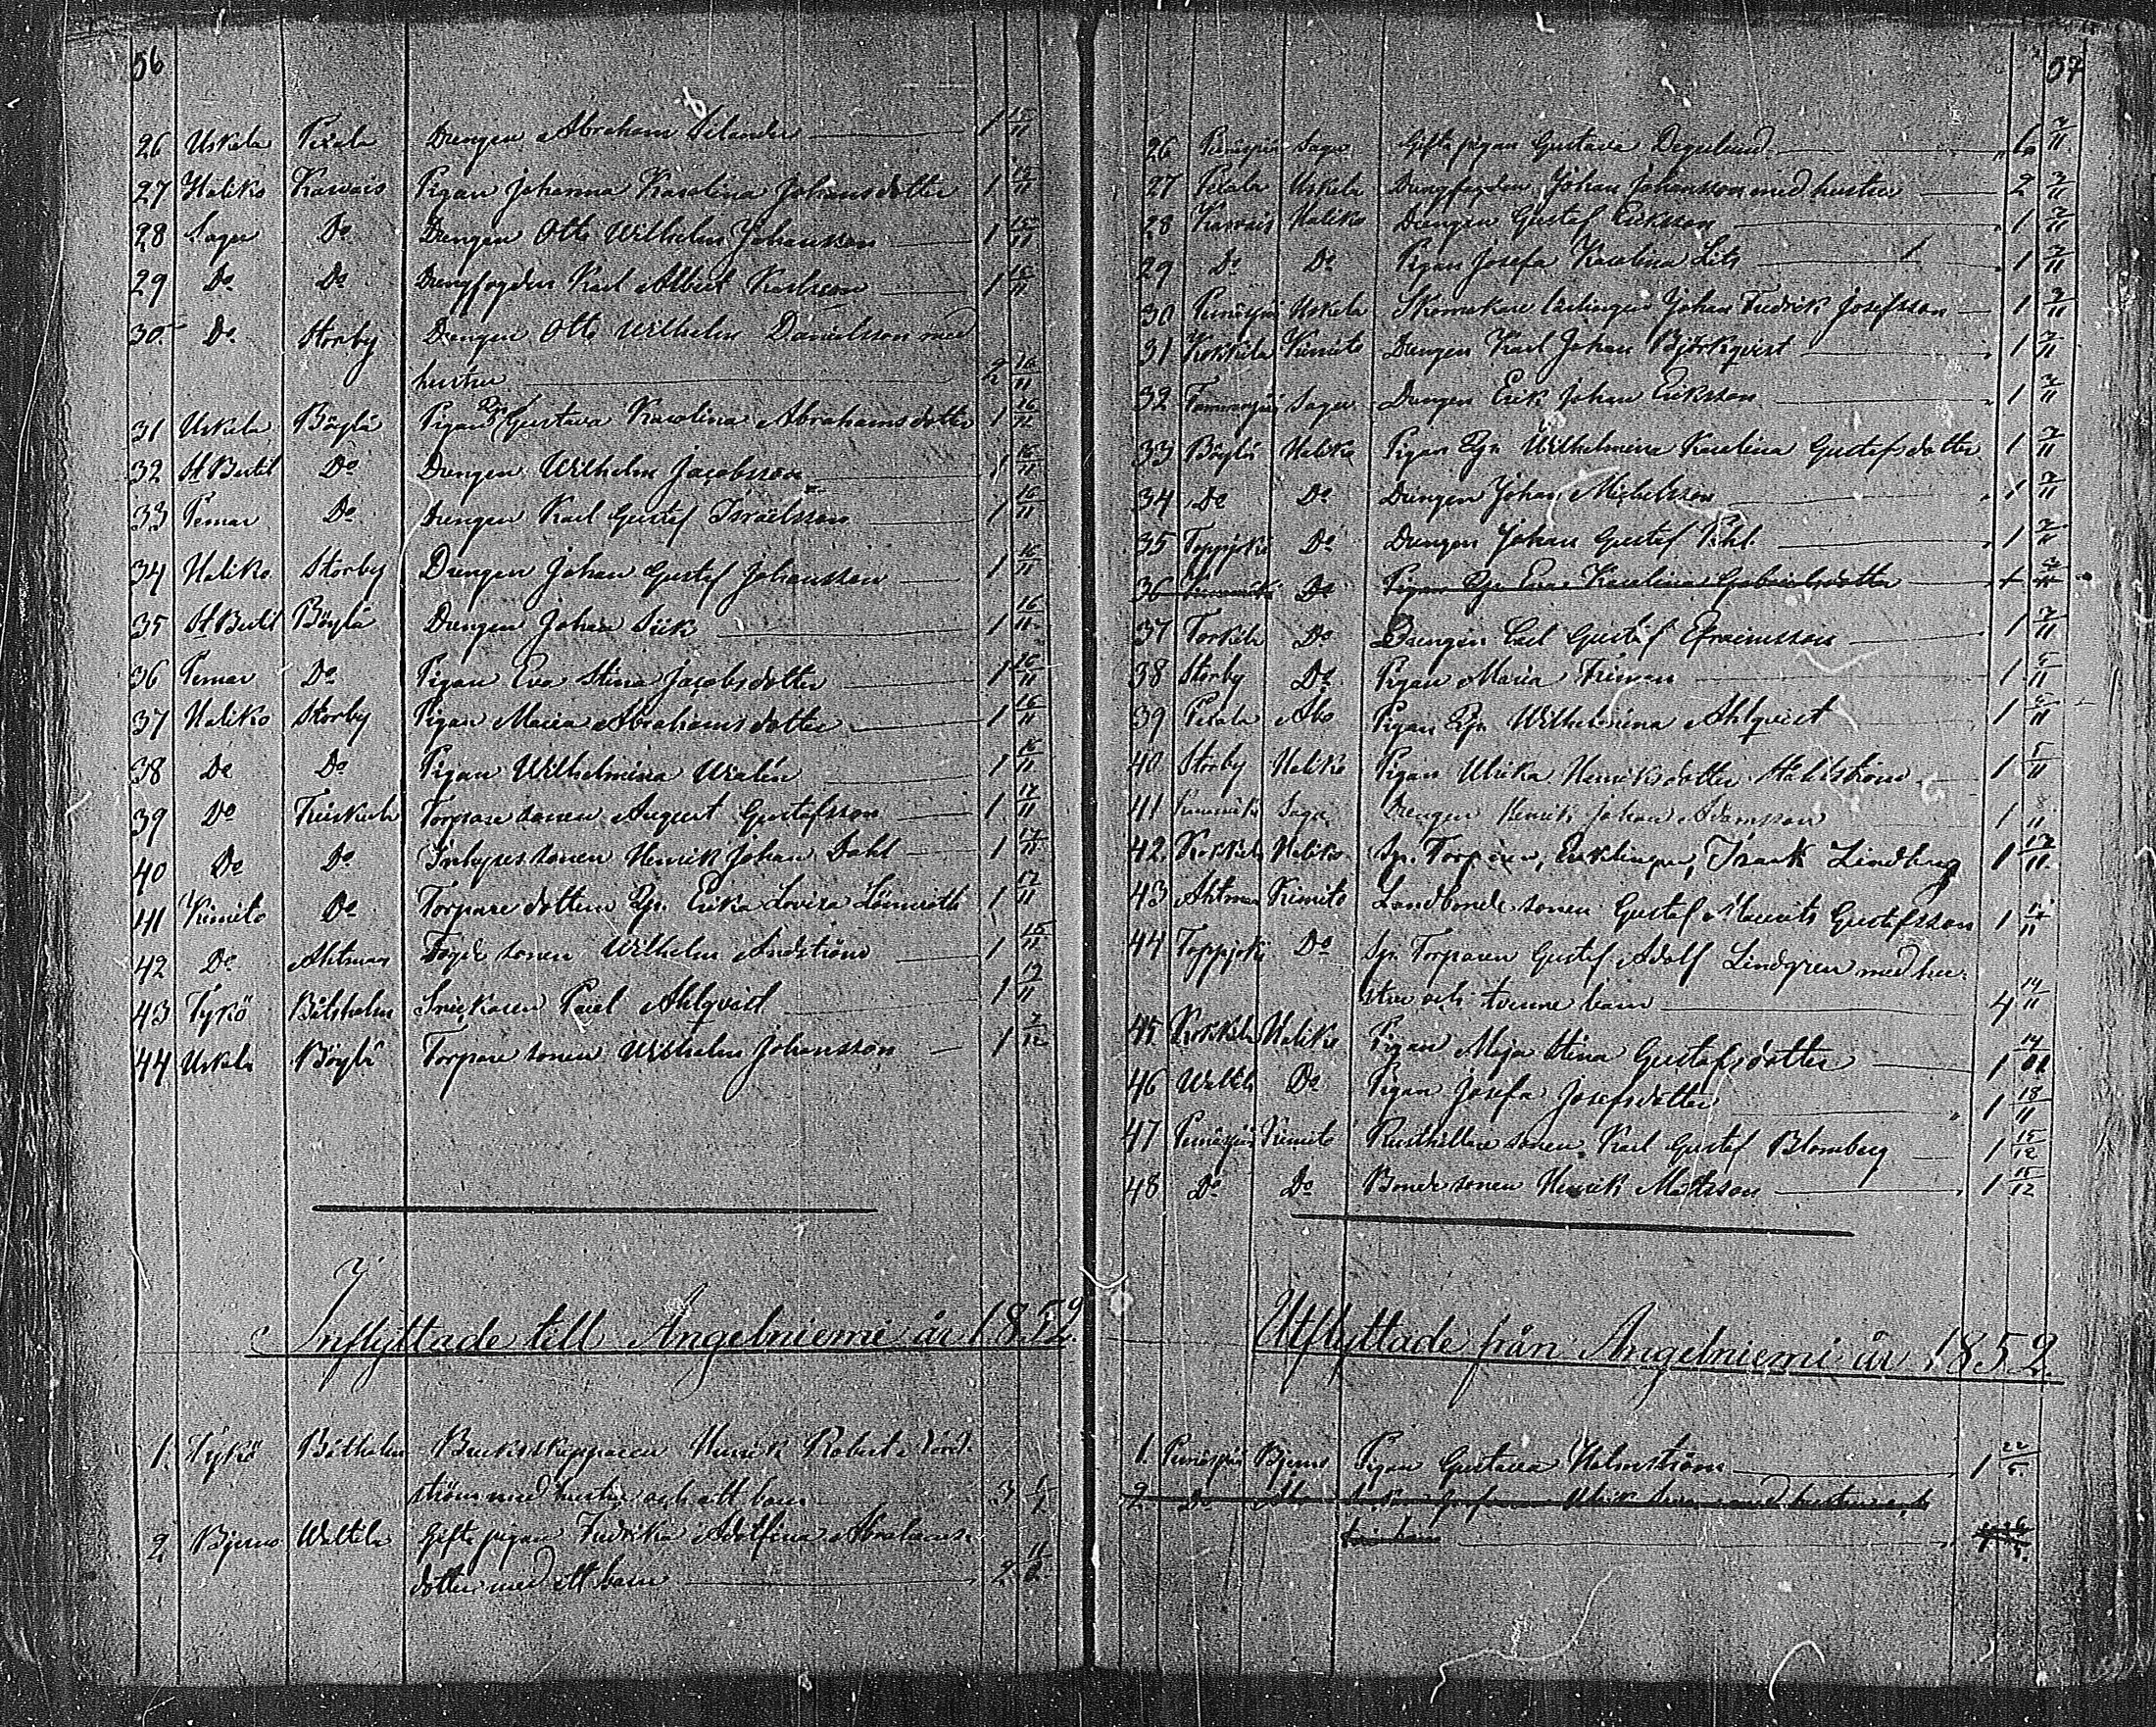 56
26 Uskela Pexala Drengen Abraham Selander 1 15/11
27 Haliko Karvais Pigan Johanna Karolina Johansdotter 1 12/11
28 Sagu Do Drengen Otto Wilhelm Johansson 1 15/11
29 Do Do Drengfogden Karl Albert Karlsson 1 15/11
30 Do Storby Drengen Otto Wilhelm Danielsson med
hustru 2 16/11
31 Uskela Böylä Pigan Gustava Karolina Abrahamsdotter 1 26/12
32 St Bertil Do Drengen Wilhelm Jacobsson 1 16/11
33 Pemar Do Drengen Karl Gustaf Israelsson 1 16/11
34 Haliko Storby Drengen Johan Gustaf Johansson 1 16/11
35 St Bertil Böylä Drengen Johan Siik 1 16/11
36 Pemar Do Pigan Eva Stina Jacobsdotter 1 16/11
37 Haliko Storby Pigan Maria Abrahamsdotter 1 16/11
38 Do Do Pigan Wilhelmina Walin 1 16/11
39 Do Torpare sonen August Gustafsson 1 17/11
40 Do Do Inhyses sonen Henrik Johan Dahl 1 17/11
41 Kimito Do Torpare dottern Pgn. Erika Lovisa Lönnroth 1 17/11
42 Do Ahtman Fogde sonen Wilhelm Lindström 1 15/11
43 Tykö Båtsholm Snickaren Karl Ahlqvist 1 17/11
44 Uskela Böylä Torpare sonen Wilhelm Johansson 1 7/12
Inflyttade till Angelniemi år 1852.
1. Tykö Båtholm Bruksskepparen Henrik Robert
ström med hustru och ett barn 3
2. Bjerno Waltila Gifta pigan Fredrika Adolfina Abrahams-
dotter med ett barn 2
57
26 Peniösjni Sagu Gifta pigan Gustava Degerlund 6 7/11
27 Pexala Uskela Drengfogden Johan Johansson med hustru 2 7/11
28 Karvais Haliko Drengen Gustaf Eriksson 1 7/11
29 Do Do Pigan Josefa Karolina Lits 1 7/11
30 Uskela Skomakare lärlingen Johan Fredrik Josefsson 1 7/11
31 Kokkila Kimito Drengen Karl Johan Björkqvist 1 7/11
32 Sagu Drengen Erik Johan Eriksson 1 7/11
33 Böylä Haliko Pigan Pgn Wilhelmina Karolina Gustafsdotter 1 7/11
34 Do Do Drengen Johan Michelsson 1 7/11
35 Toppjoki Do Drengen Johan Gustaf Pihl 1 7/11
36 Do Pigan Pgn Eva Karolina Gabrielsdotter 1
37 Torkila Do Drengen Carl Gustaf Efraimsson 1 7/11
38 Storby Do Pigan Maria Friman 1 5/11
39 Pexala Åbo Pigan Pgn Wilhelmina Ahlqvist 1 5/11
40 Storby Haliko Pigan Ulrika Henriksdotter Hallström 1 5/11
41 Sagu Drengen Henrik Johan Adamsson 1 8/11
42. Kokkila Haliko Sp. Torparen, Enklingen, Isaak Lindberg 1 13/11
43 Ahtman Kimito Landbonde sonen Gustaf Maurits Gustafsson 1 11/11
44 Toppjoki Do Sp. Torparen Gustaf Adolf Lindgren med hu-
stru och tvenne barn 4 14/11
45 Kokkila Haliko Pigan Maja Stina Gustafsdotter 1 14/11
46 Waltila Do Pigan Josefa Josefsdotter 1 18/11
47 Kimito Rusthållare sonen Karl Gustaf Blomberg 1 15/12
48 Do Do Bonde sonen Henrik Matsson 1 15/12
Utflyttade från Angelniemi år 1852.
1. Bjerno Pigan Gustava Holmström 1 22/5
2 Do Åbo med hustru och
barn